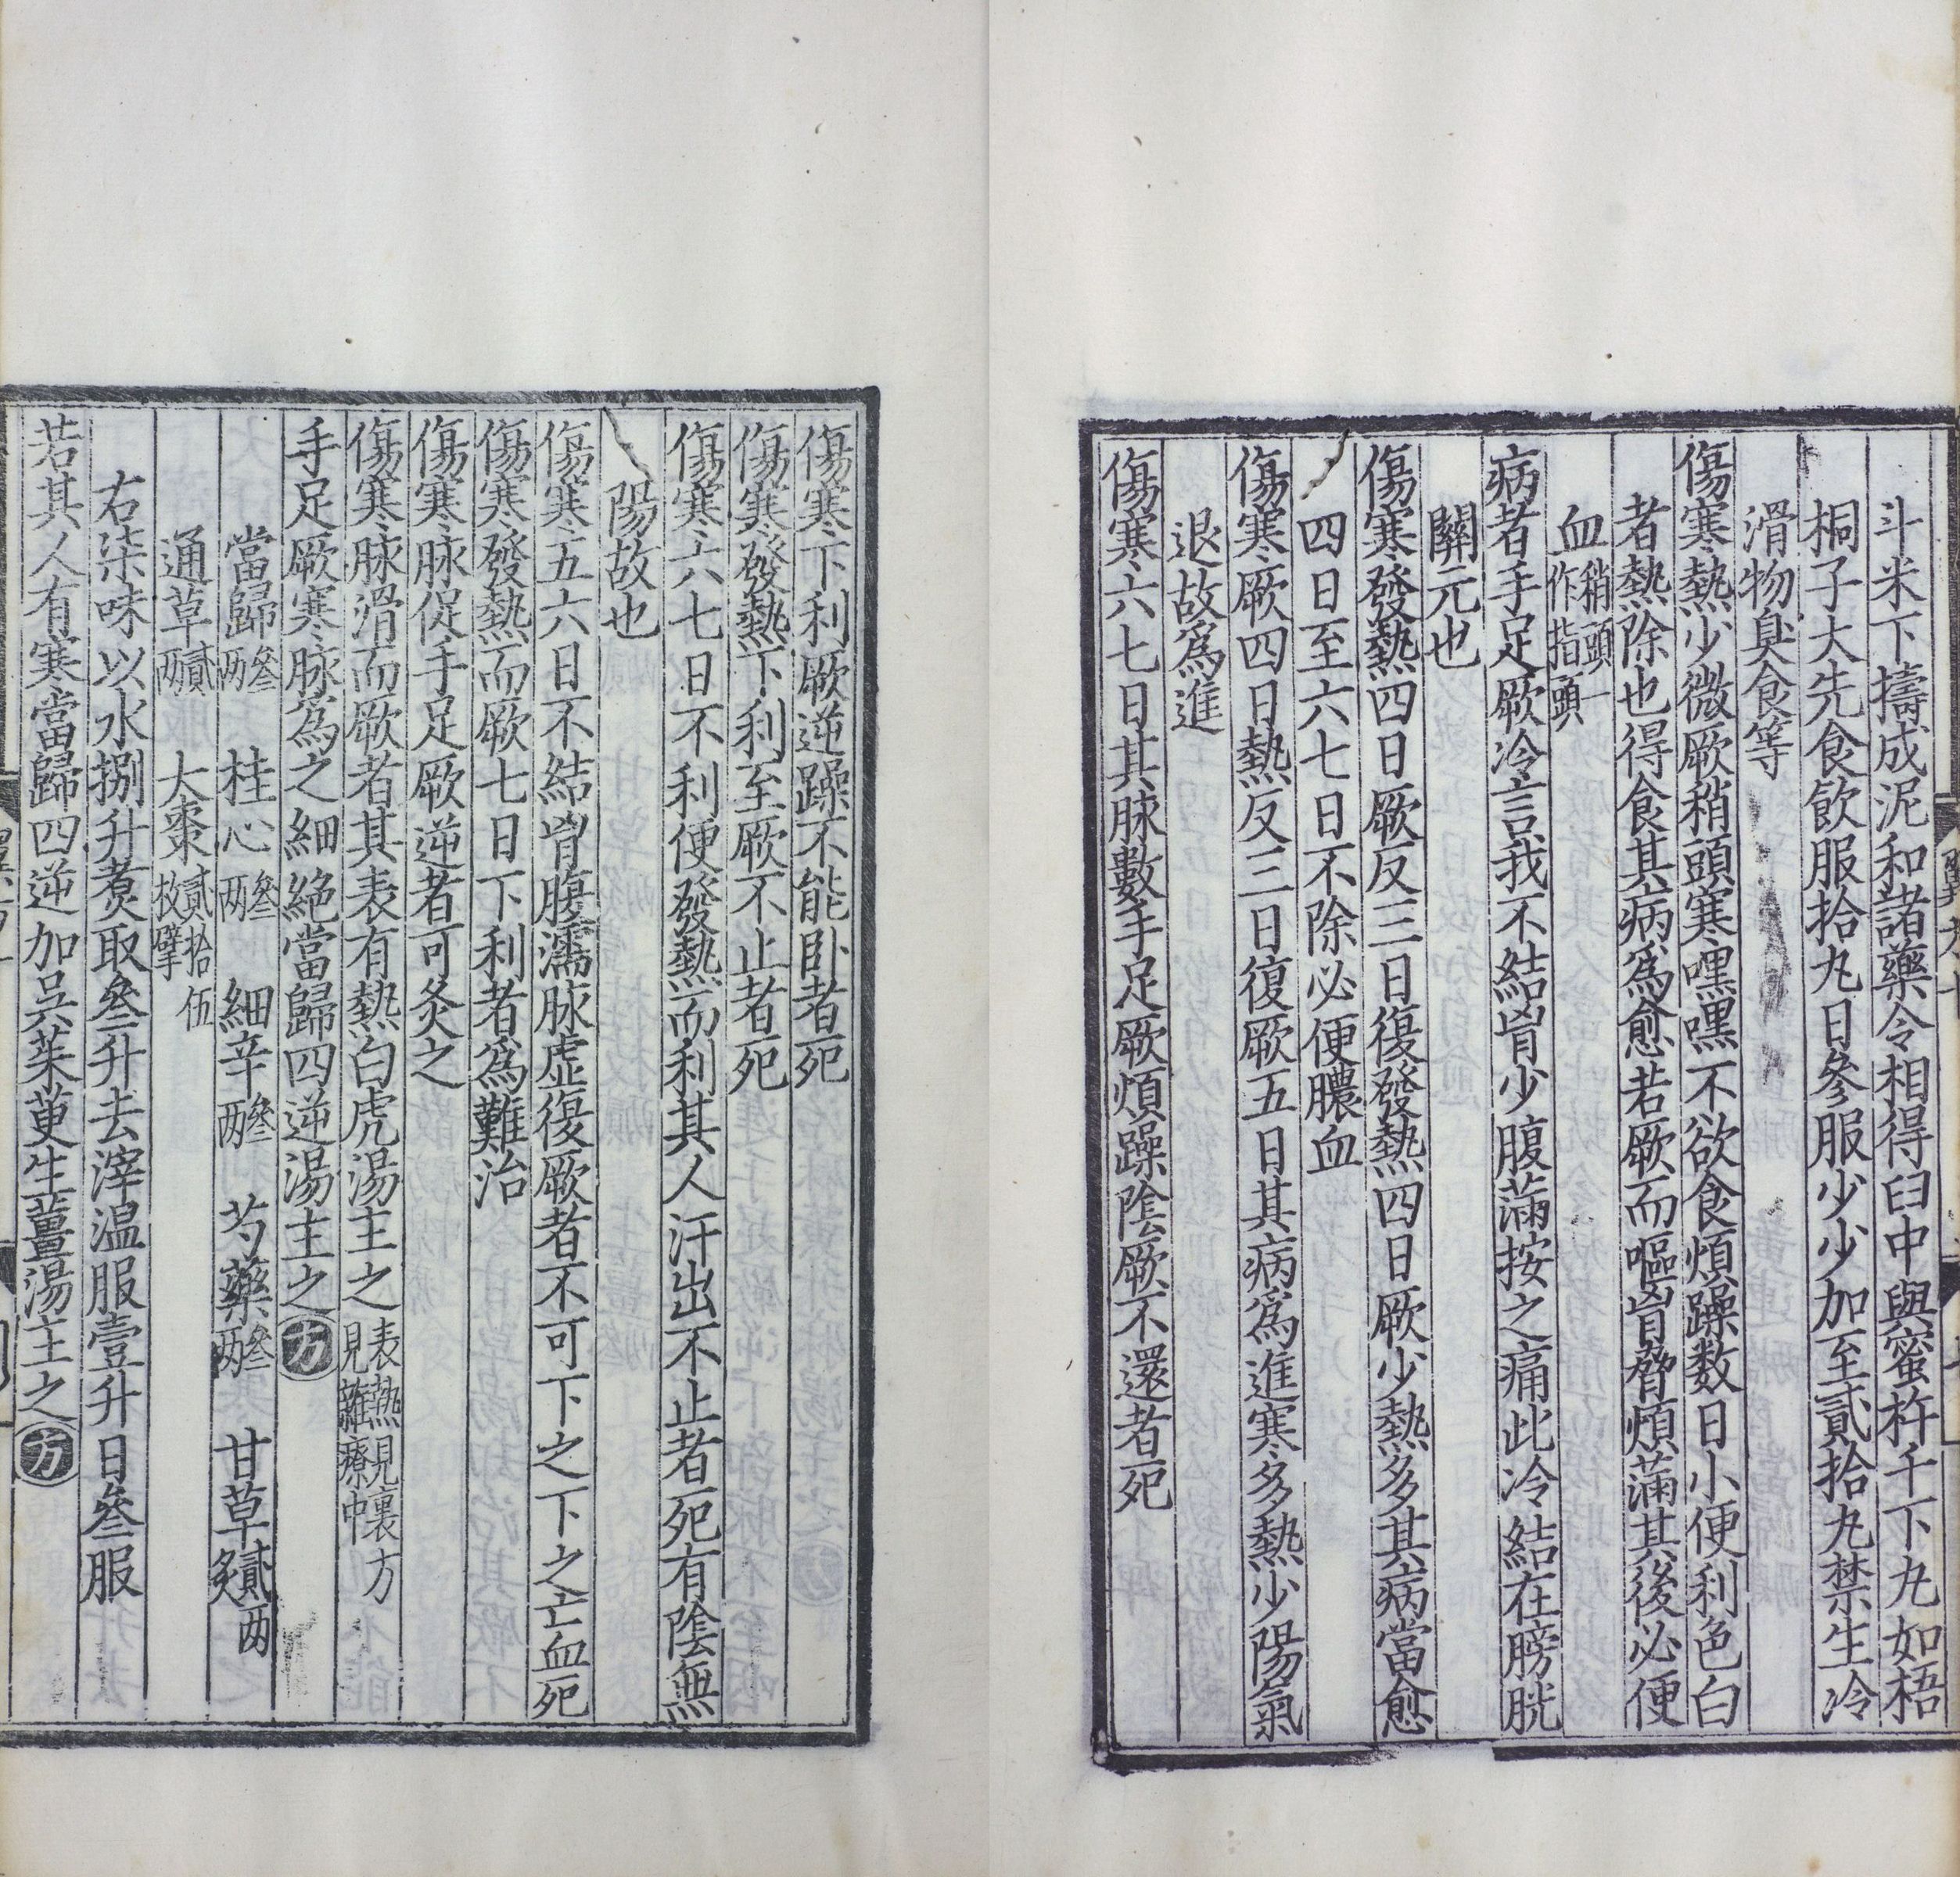 斗米下擣成泥和諸藥令相得臼中與蜜杵千下丸如梧
桐子大先食飲服拾丸日叄服少少加至貳拾丸禁生冷
滑物臭食等
傷寒熱少微厥稍頭寒嘿嘿不欲食煩躁数日小便利色白
者熱除也得食其病爲愈若厥而嘔胷脅煩滿其後必便
血稍頭一作指頭
病者手足厥冷言我不結胷少腹滿按之痛此冷結在膀胱
關元也
傷寒發熱四日厥反三日復發熱四日厥少熱多其病當愈
四日至六七日不除必便膿血
傷寒厥四日熱反三日復厥五日其病爲進寒多熱少陽氣
退故爲進
傷寒六七日其脉數手足厥煩躁陰厥不還者死
傷寒下利厥逆躁不能卧者死
傷寒發熱下利至厥不止者死
傷寒六七日不利便發熱而利其人汗出不止者死有陰無
陽故也
傷寒五六日不結胷腹濡脉虛復厥者不可下之下之亡血死
傷寒發熱而厥七日下利者爲難治
傷寒脉促手足厥逆者可灸之
傷寒脉滑而厥者其表有熱白虎湯主之表熱見裏方見雜療中
手足厥寒脉爲之細絕當歸四逆湯主之方
當歸叄两 桂心叄两 細辛叄两 芍藥叄两 甘草貳两炙
通草貳两 大棗貳拾伍枚擘
右柒味以水捌升煑取叄升去滓温服壹升日叄服
若其人有寒當歸四逆加吳茱萸生薑湯主之方